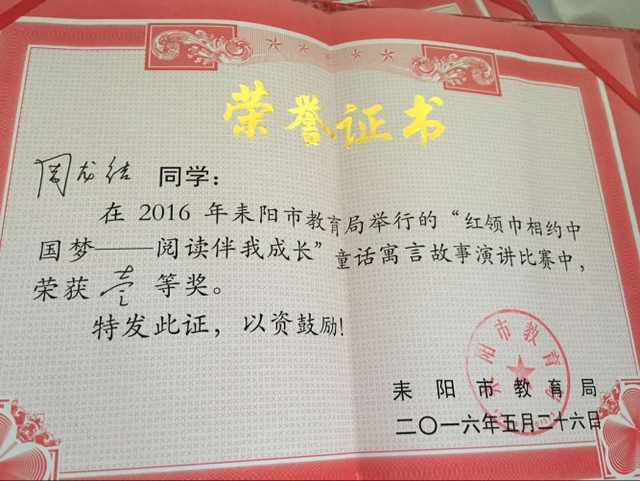 荣誉证书
周龙结 同学：
在2016年耒阳市教育局举行的“红领巾相约中
国梦——阅读伴我成长”童话寓言故事演讲比赛中，
荣获 壹 等奖。
特发此证，以资鼓励！
耒阳市教育局
耒阳市教育局
二〇一六年五月二十六日